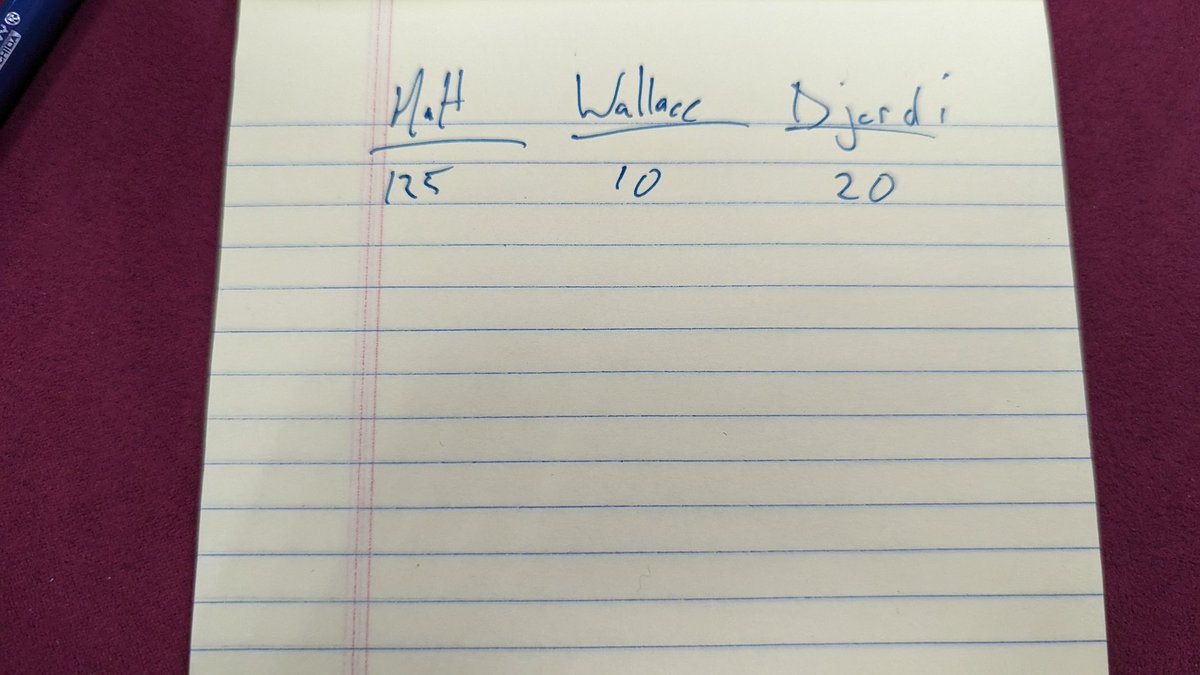 Matt Wallace Djerdi
125 10 20